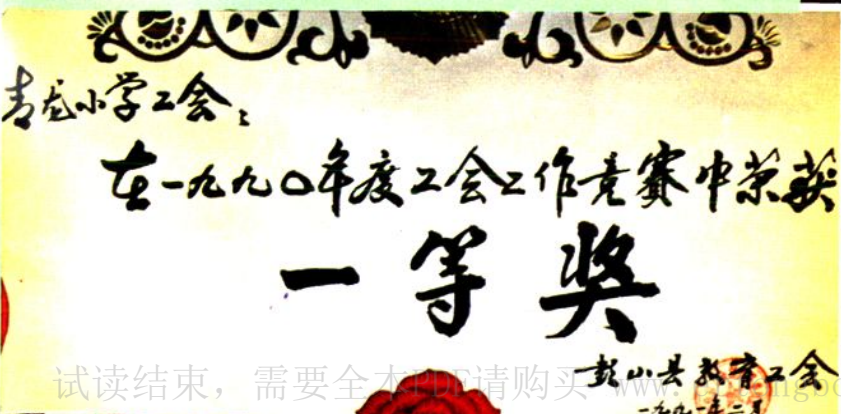 青龙小学工会：
在一九九〇年度工会工作竞赛中荣获
一等奖
彭山县教育工会
一九九一年二月
试读结束，需要全本PDF请购买 www.